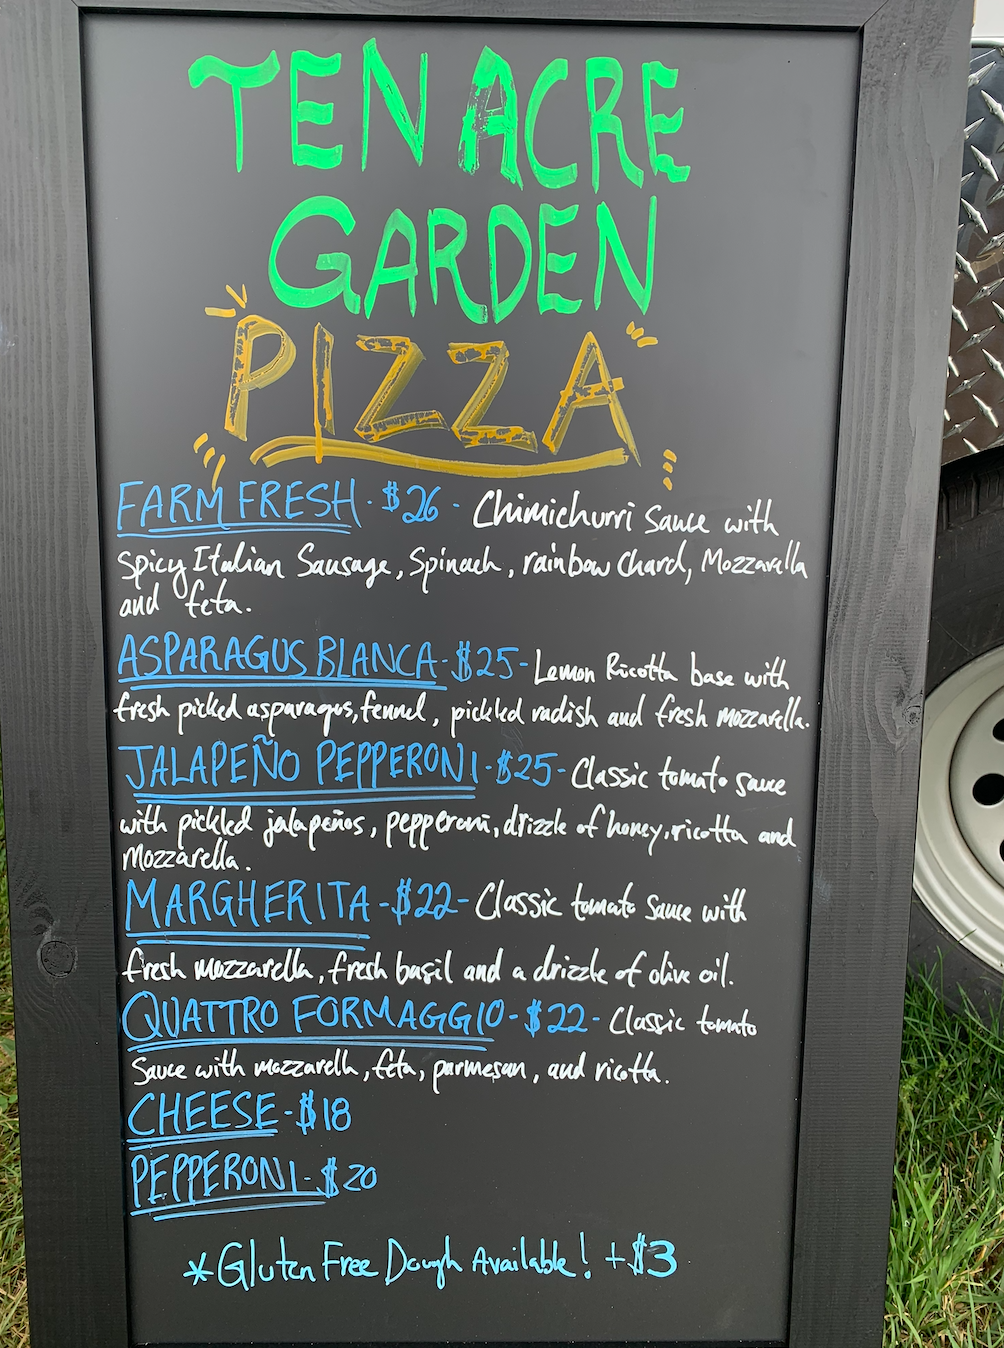 TEN ACRE
GARDEN
PIZZA
FARM FRESH - $26 - Chimichurri Sauce with
Spicy Italian Sausage, Spinach, rainbow Chard, Mozzarella
and feta.
ASPARAGUS BLANCA - $25 - Lemon Ricotta base with
fresh picked asparagus, fennel, pickled radish and fresh mozzarella.
JALAPEÑO PEPPERONI - $25 - Classic tomato sauce
with pickled jalapeños, pepperoni, drizzle of honey, ricotta and
Mozzarella.
MARGHERITA - $22 - Classic tomato Sauce with
fresh mozzarella, fresh basil and a drizzle of olive oil.
QUATTRO FORMAGGIO - $22 - Classic tomato
Sauce with mozzarella, feta, parmesan, and ricotta.
CHEESE - $18
PEPPERONI - $20
*Gluten Free Dough Available! +$3